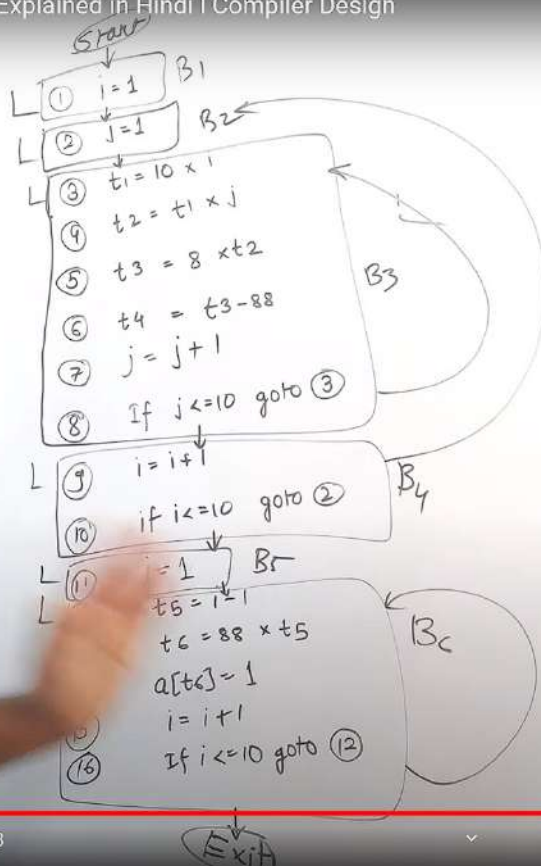 Explained in Hindi I Compiler Design
Start
L ① i=1 B1
L ② j=1 B2
L ③ t1 = 10 × i
④ t2 = t1 × j
⑤ t3 = 8 × t2
⑥ t4 = t3-88
⑦ j = j+1
⑧ If j<=10 goto ③
B3
L ⑨ i = i+1
⑩ if i<=10 goto ② B4
L ⑪ i=1 B5
L t5 = i-1
t6 = 88 × t5
B6
a[t6] = 1
i = i+1
⑯ If i<=10 goto ⑫
Exit